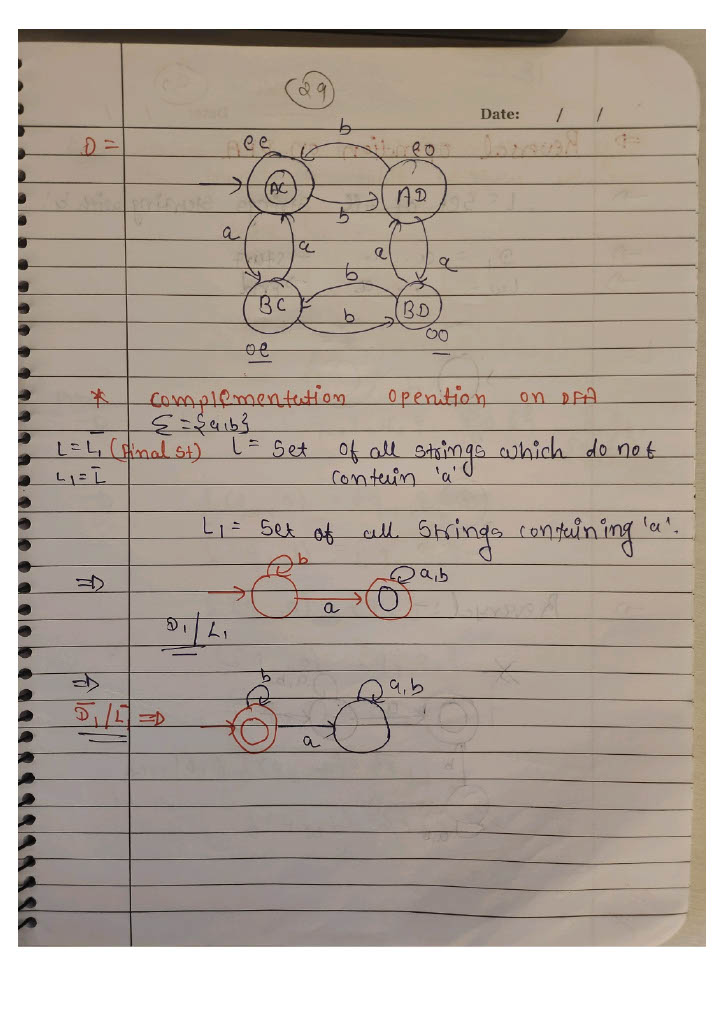 29
Date: / /
D =
ee
b
eo
AC
AD
b
a
a
a
a
b
BC
BD
b
oe
oo
* Complementation operation on DFA
Σ = {a,b}
L = L̄₁ (Final st) L = Set of all strings which do not
L₁ = L̄ contain 'a'
L₁ = Set of all strings containing 'a'.
⇒ b a,b
a
D₁/L₁
⇒ b a,b
D̄₁/L̄ ⇒
a